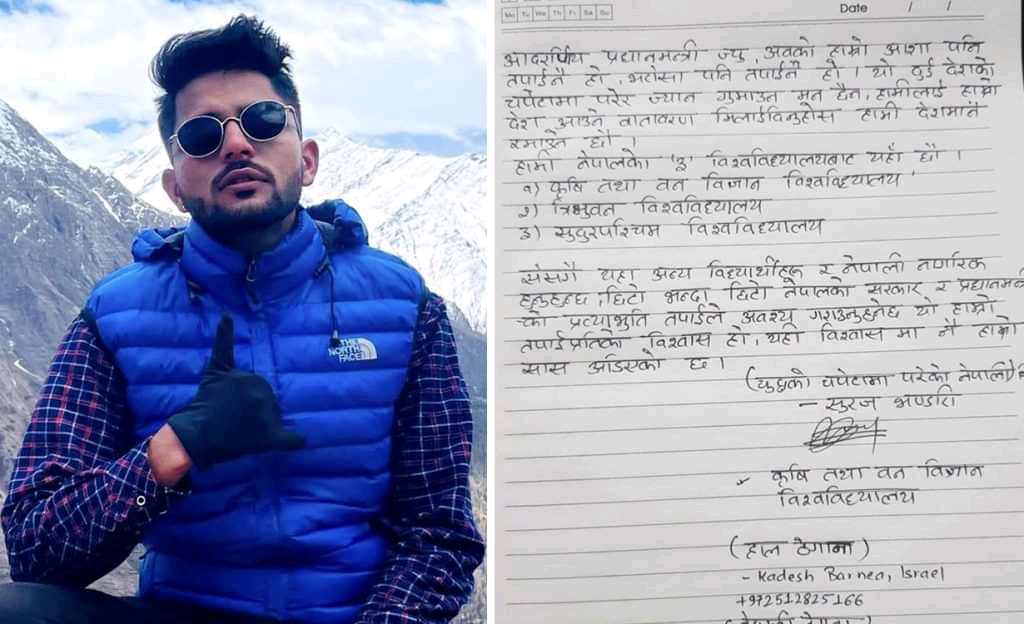 THE
NORTH
FACE
Date / /
Mo Tu We Th Fr Sa Su
आदरणिय प्रद्यानमन्त्री ज्यु, अबको हाम्रो आशा पनि
तपाईनै हो, भरोसा पनि तपाईनै हो । यो दुई देशको
चपेटामा परेर ज्यान गुमाउन मन छैन, हामीलाई हाम्रो
देश आउने वातावरण मिलाईदिनुहोस हामी देशमानै
रमाउने छौं ।
हामी नेपालका '३' विश्वविद्यालयबाट यहाँ छौं ।
१) कृषि तथा वन विज्ञान विश्वविद्यालय
२) त्रिभुवन विश्वविद्यालय
३) सुदुरपश्चिम विश्वविद्यालय
सँसगै यहा अन्य विद्यार्थीहरू र नेपाली नागरिक
हुनुहुन्छ, छिटो भन्दा छिटो नेपालको सरकार र प्रद्यानमन्
को प्रत्याभुति तपाईले अवश्य गराउनुहुनेछ यो हाम्रो
तपाई प्रतिको विश्वास हो, यही विश्वास मा नै हाम्रो
सास अडिएको छ ।
(युद्धको चपेटामा परेको नेपाली)
- सुरज भण्डारी
कृषि तथा वन विज्ञान
विश्वविद्यालय
(हाल ठेगाना)
- Kadesh Barnea, Israel
+972512825166